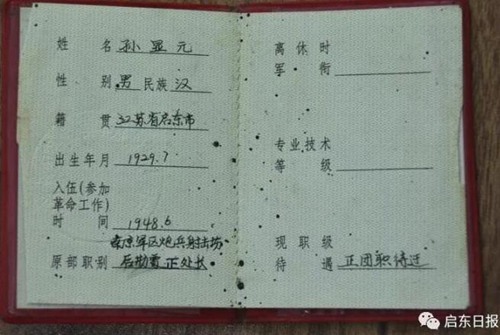 姓名 孙显元
性别 男 民族 汉
籍贯 江苏省启东市
出生年月 1929.7
入伍(参加
革命工作)
时间 1948.6
南京军区炮兵射击场
原部职别 后勤 正处长
离休时
军衔
专业技术
等级
现职级
待遇 正团职待遇
启东日报